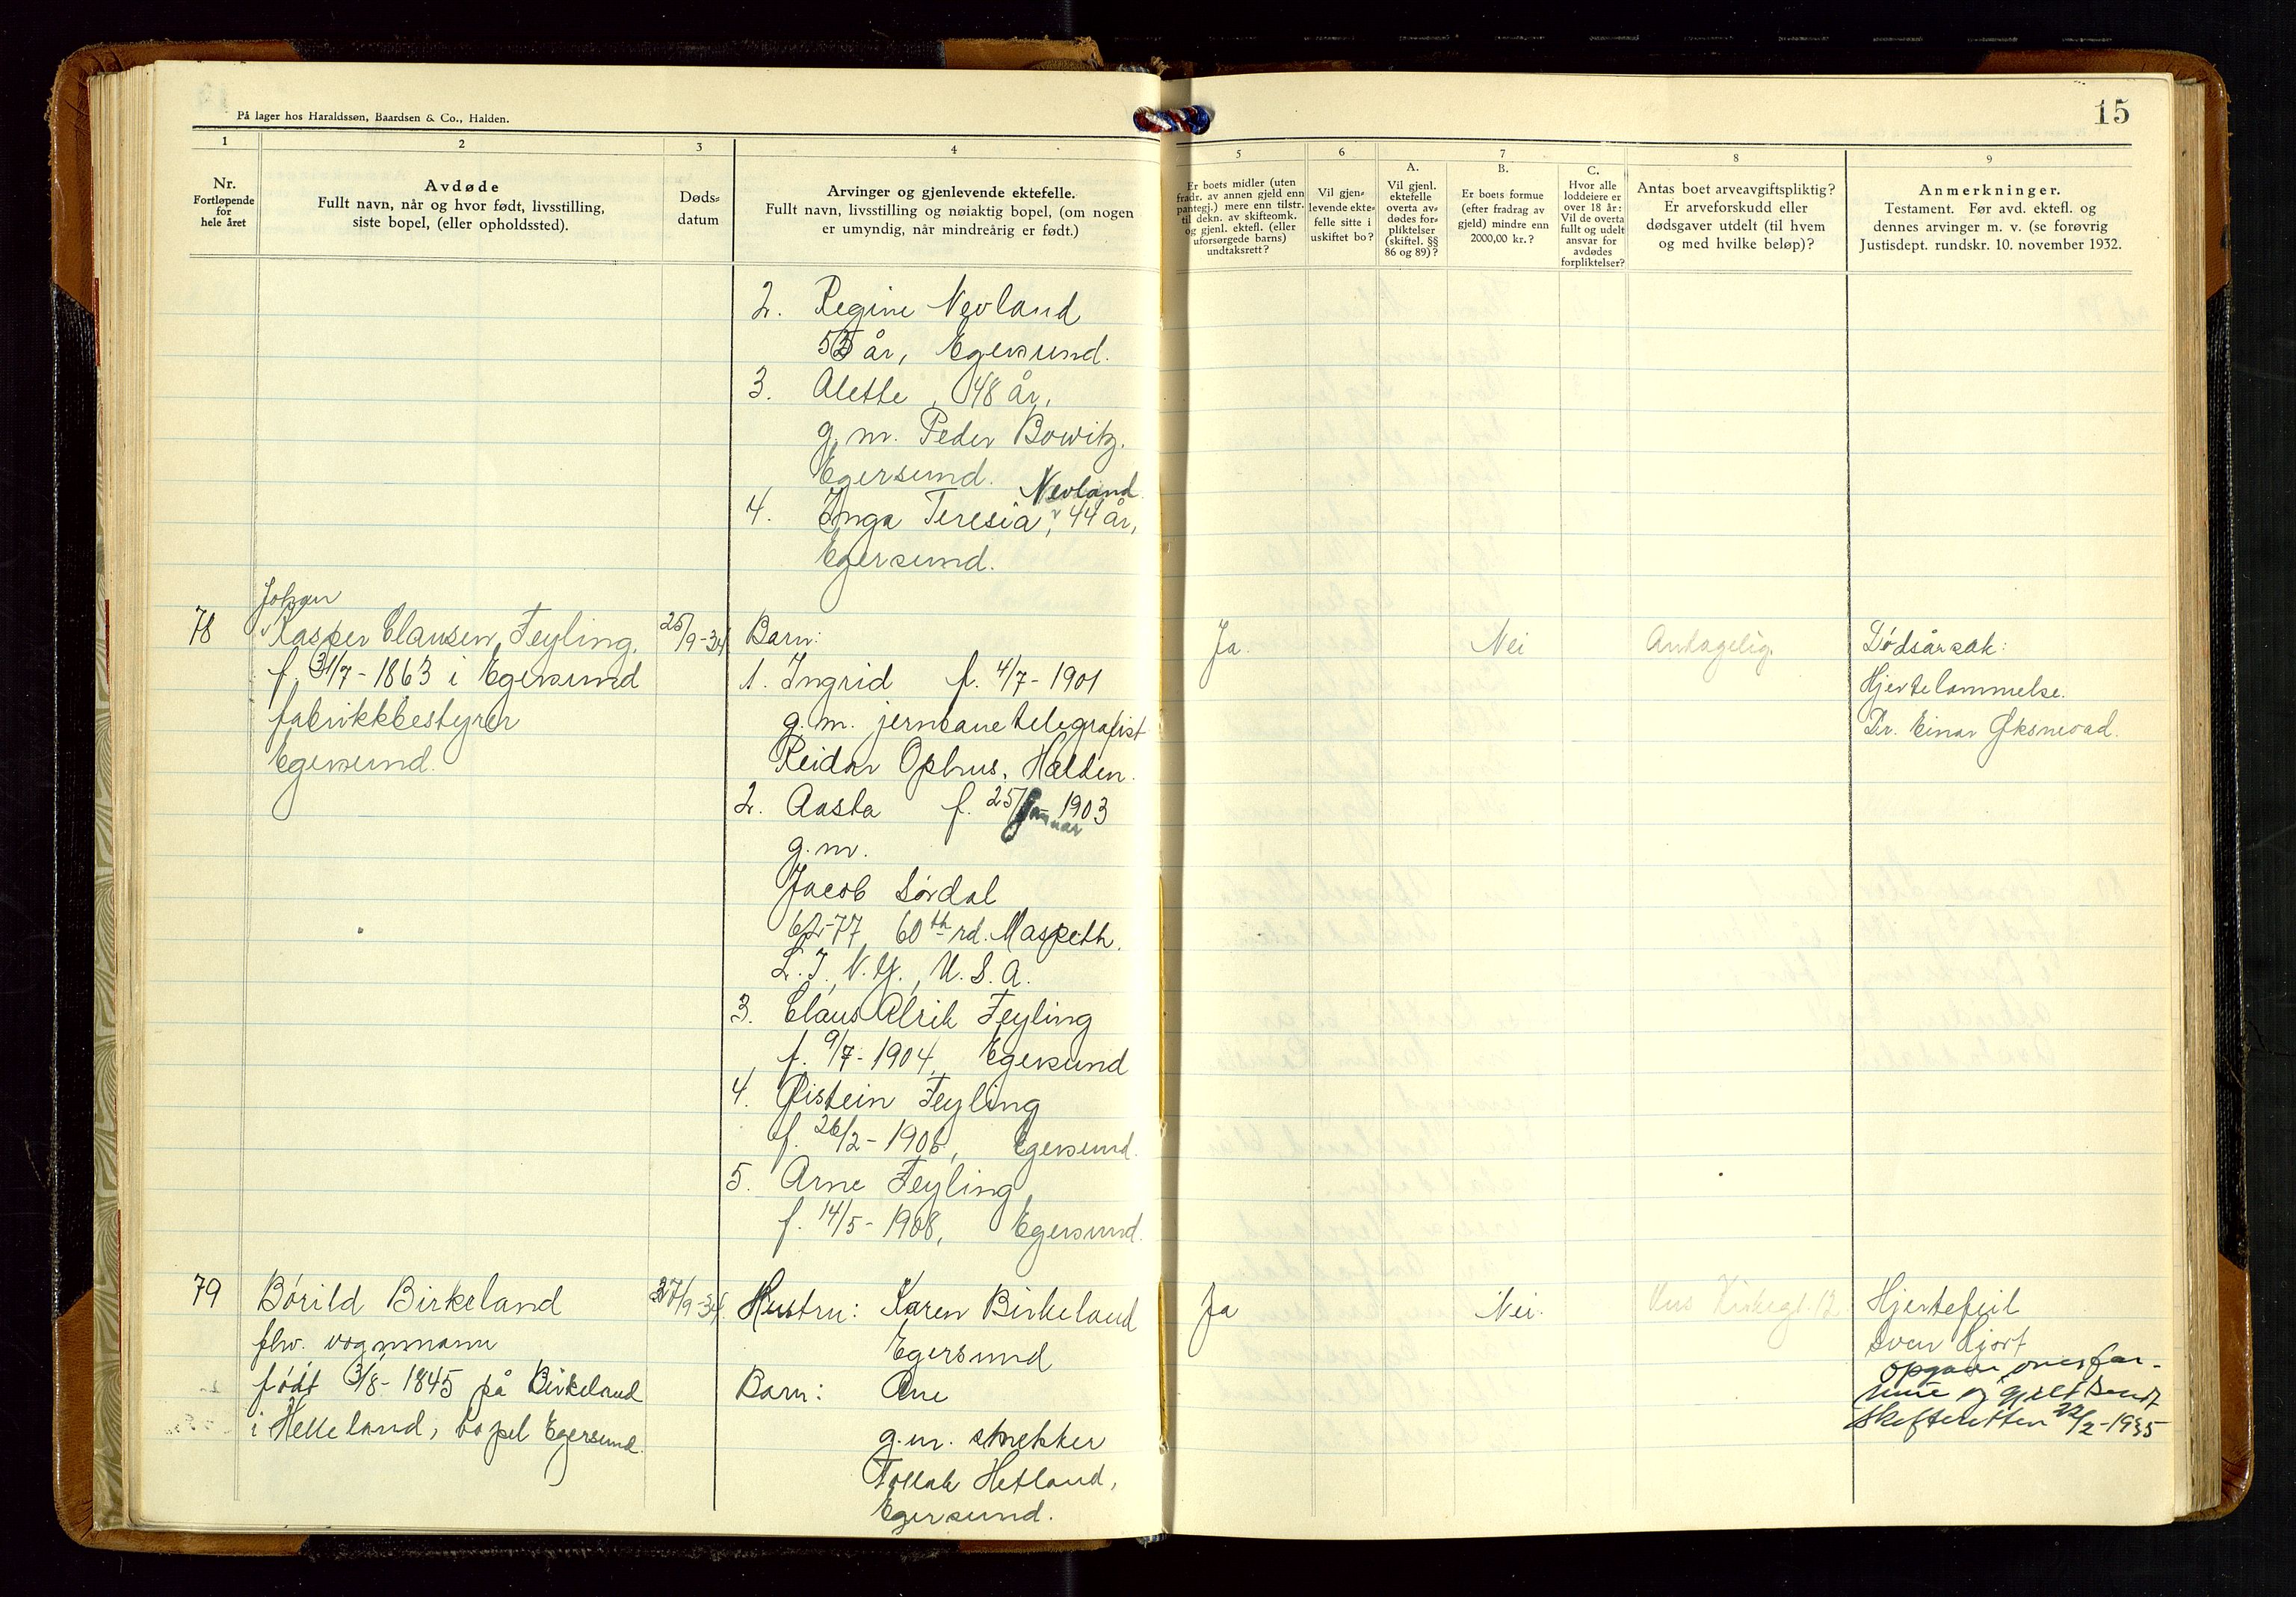 På lager hos Haraldssøn, Baardsen & Co., Halden.
15
1
2
3
4
5
6
7
8
9
Nr.
Fortløpende
for
hele året
Avdøde
Fullt navn, når og hvor født, livsstilling,
siste bopel, (eller opholdssted).
Døds-
datum
Arvinger og gjenlevende ektefelle.
Fullt navn, livsstilling og nøiaktig bopel, (om nogen
er umyndig, når mindreårig er født.)
Er boets midler (uten
fradr. av annen gjeld enn
pantegj.) mere enn tilstr.
til dekn. av skifteomk.
og gjenl. ektefl. (eller
uforsørgede barns)
undtaksrett?
Vil gjen-
levende ekte-
felle sitte i
uskiftet bo?
A.
Vil gjenl.
ektefelle
overta av-
dødes for-
pliktelser
(skiftel. §§
86 og 89)?
B.
Er boets formue
(efter fradrag av
gjeld) mindre enn
2000,00 kr.?
C.
Hvor alle
loddeiere er
over 18 år:
Vil de overta
fullt og udelt
ansvar for
avdødes
forpliktelser?
Antas boet arveavgiftspliktig?
Er arveforskudd eller
dødsgaver utdelt (til hvem
og med hvilke beløp)?
Anmerkninger.
Testament. Før avd. ektefl. og
dennes arvinger m. v. (se forøvrig
Justisdept. rundskr. 10. november 1932.
2. Regine Nevland
år, Egersund.
3. Alette, 48 år,
g.m. Peder Bowitz.
Egersund.
Nevland
4. Inga Teresia, 44 år,
Egersund.
Johan
78 Kasper Clausen Feyling, 25/9-34 Barn: Ja. Nei Antagelig. Dødsårsak:
f. 31/7-1863 i Egersund
fabrikkbestyrer
Egersund.
1. Ingrid f. 4/7-1901
g.m. jernbanetelegrafist
Reidar Ophus, Halden.
2. Aasta f. 25/januar 1903
g.m.
Jacob Sørdal
62-77 60th rd. Maspeth.
L.I, N.Y., U.S.A.
3. Claus Alrik Feyling
f. 9/7-1904, Egersund
4. Øistein Feyling
f. 26/2-1906, Egersund.
5. Arne Feyling
f. 14/5-1908, Egersund.
Hjertelammelse.
Dr. Einar Øksnevad.
79 Børild Birkeland 27/9-34. Hustru: Karen Birkeland Ja Nei. Hus Kirkegt. 12. Hjertefeil
fhv. vognmann
født 3/8-1845 på Birkeland
i Helleland, bopel Egersund.
Egersund
Barn: Ane
g.m. snekker
Tollak Hetland,
Egersund.
Sven Hjort
opgave over for-
mue og gjelt sendt
skifteretten 22/2-1935